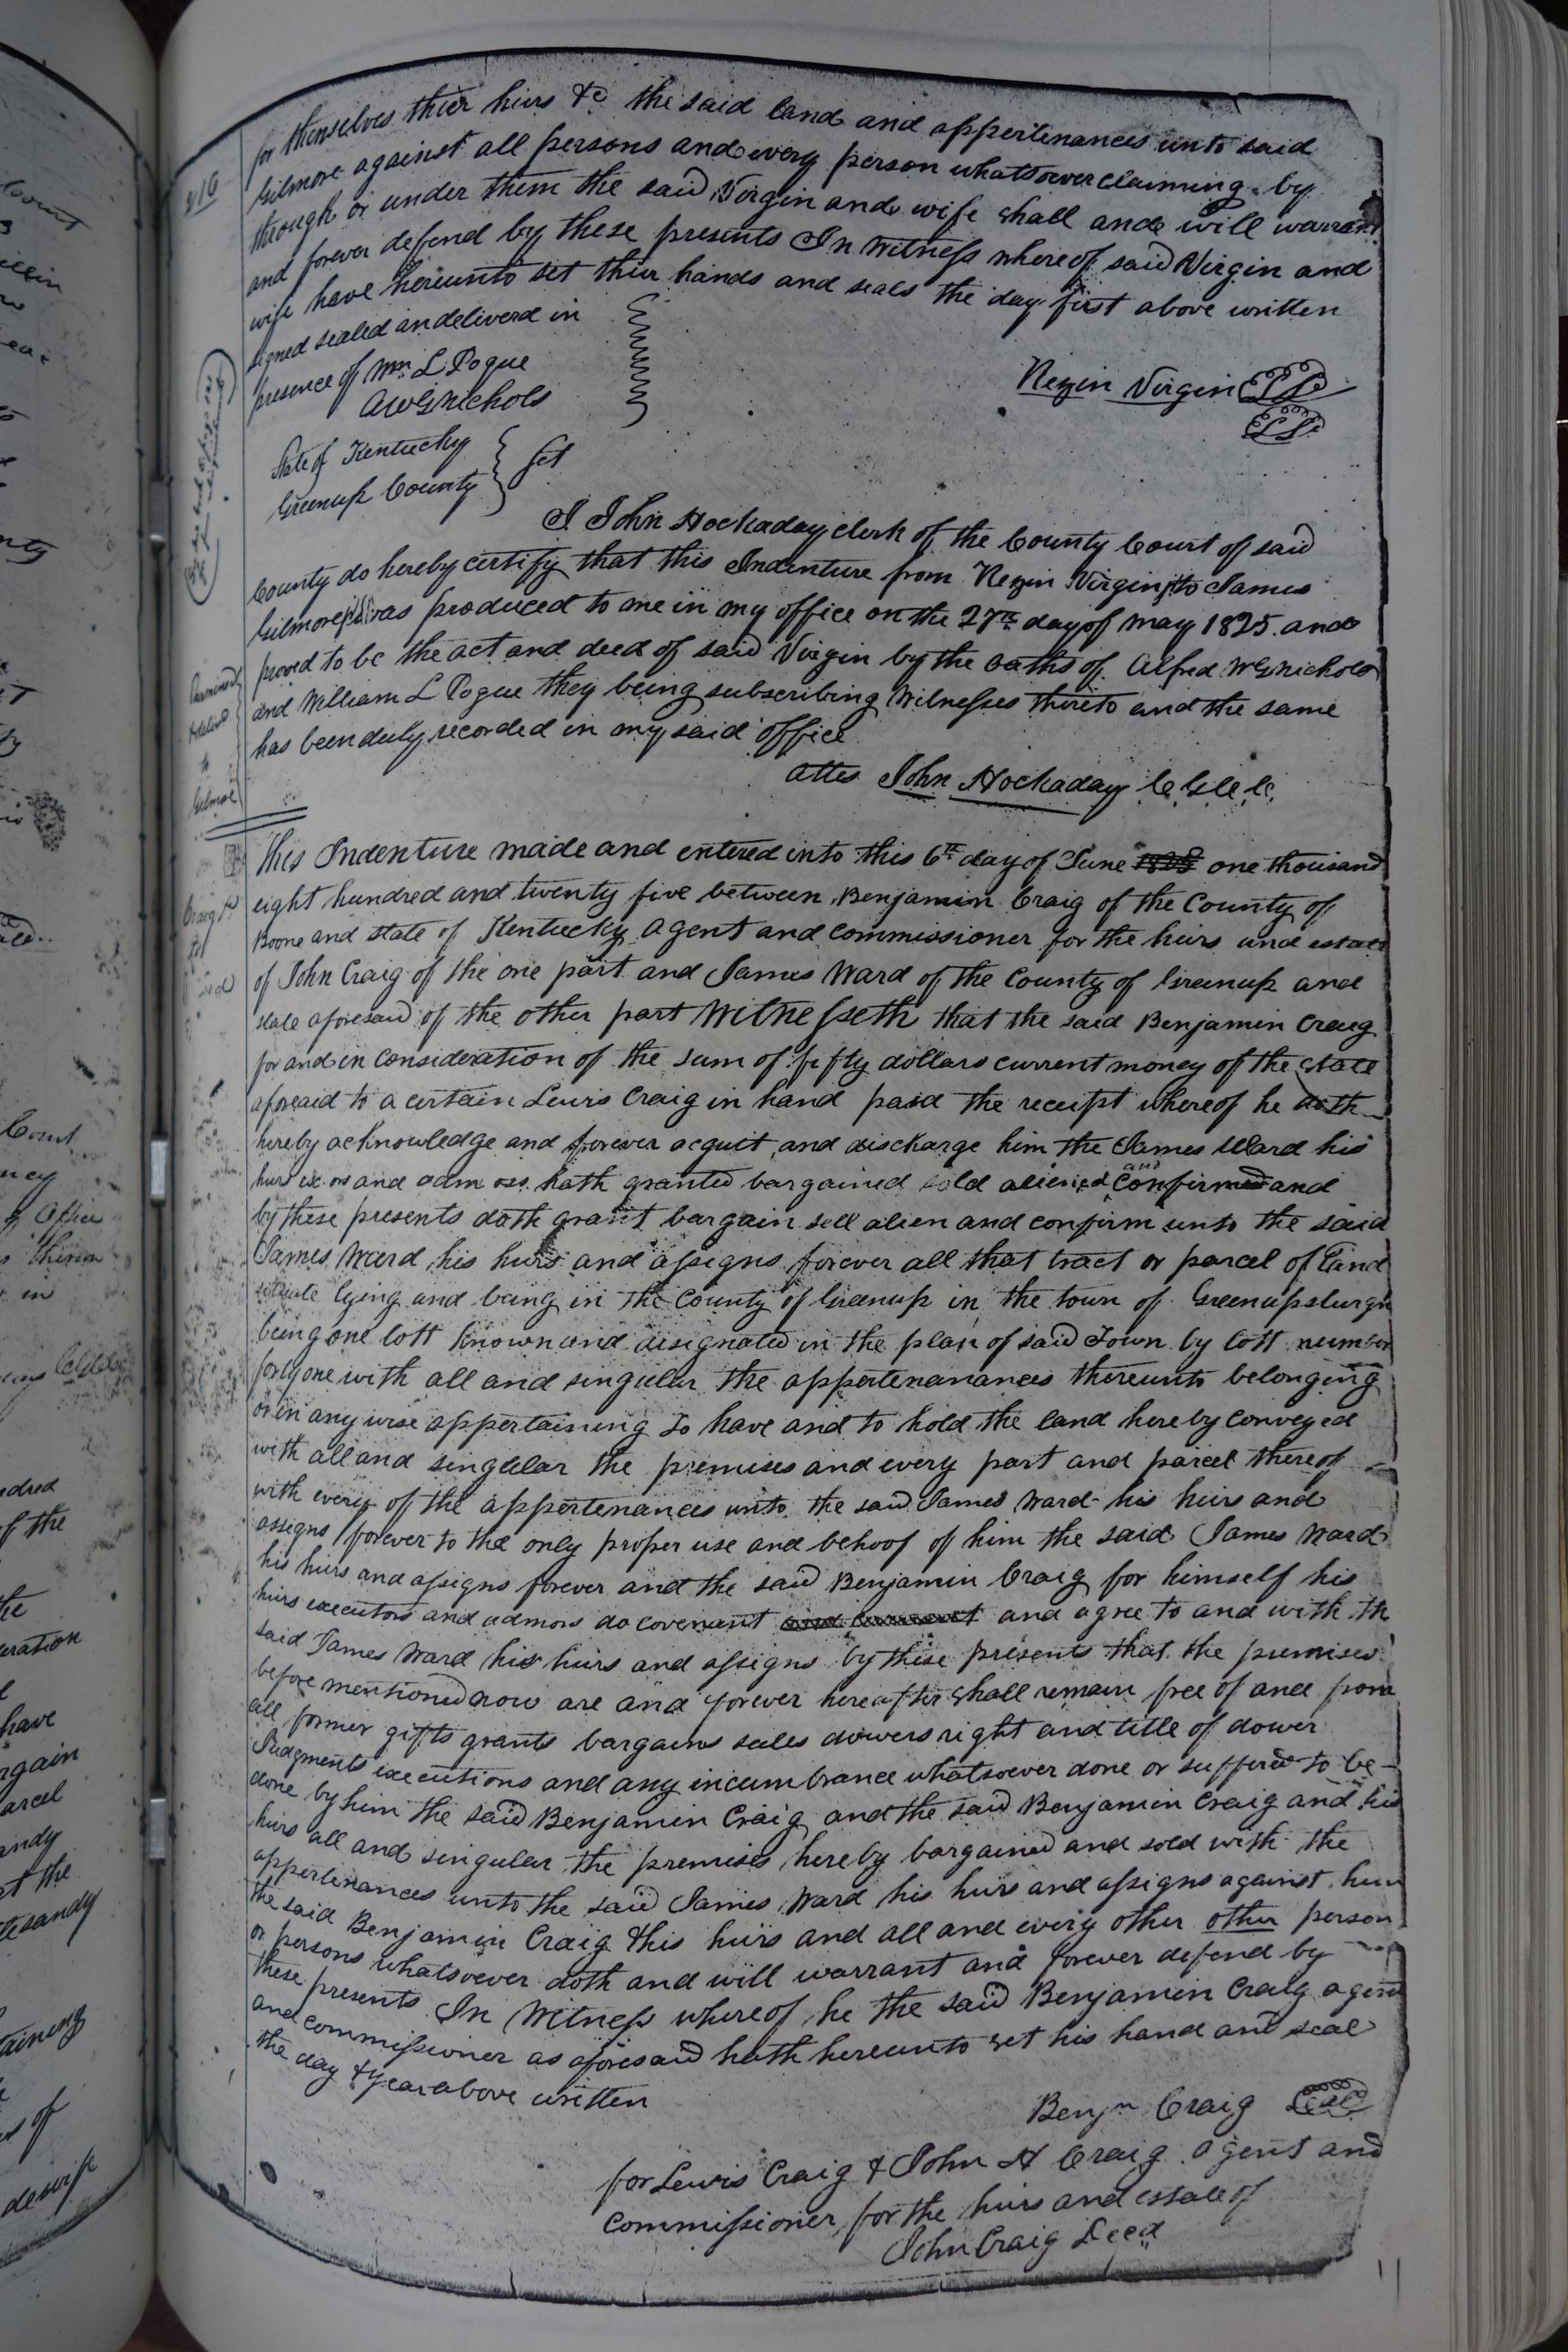 for themselves thier hiers &c the said land and appertinances unto said
Gilmore against all persons and every person whatsoever claiming by
through or under them the said Virgin and wife shall and will warrant
and forever defend by these presents In Witness whereof said Virgin and
wife have hereunto set thier hands and seals the day first above written
signed sealed an deliverd in
presence of Wm L Pogue
AWG Nichols
Rezin Virgin LS
LS
State of Kentucky
Greenup County
Sct
I John Hockaday clerk of the County Court of said
County do hereby certify that this Indenture from Rezin Virgin to James
Gilmore was produced to me in my office on the 27th day of may 1825 and
proved to be the act and deed of said Virgin by the oaths of Alfred WG Nichols
and William L Pogue they being subscribing Witnesses thereto and the same
has been duly recorded in my said office
attes John Hockaday C.G.C.C.
This Indenture made and entered into this 6th day of June 1825 one thousand
eight hundred and twenty five between Benjamin Craig of the County of
Boone and state of Kentucky Agent and commissioner for the hiers and estate
of John Craig of the one part and James Ward of the County of Greenup and
state aforesaid of the other part Witnesseth that the said Benjamin Craig
for and in consideration of the sum of fifty dollars current money of the state
aforesaid to a certain Lewis Craig in hand paid the receipt whereof he doth
hereby acknowledge and forever acquit and discharge him the James Ward his
hiers ex ors and adm ors hath granted bargained sold aliened and confirmed and
by these presents doth grant bargain sell alien and confirm unto the said
James Ward his hiers and assigns forever all that tract or parcel of Land
situate lying and being in the County of Greenup in the town of Greenupsburgh
being one lott known and designated in the plan of said Town by lott number
forty one with all and singular the appertenanances thereunto belonging
or in any wise appertaining To have and to hold the land hereby conveyed
with all and singular the premises and every part and parcel thereof
with every of the appertenances unto the said James Ward his heirs and
assigns forever to the only proper use and behoof of him the said James Ward
his hiers and assigns forever and the said Benjamin Craig for himself his
hiers executors and admors do covenant and agree to and with the
said James Ward his hiers and assigns by these presents that the premises
before mentioned now are and forever hereafter shall remain free of and from
all former gifts grants bargains sales dowers right and title of dower
Judgments executions and any incumbrance whatsoever done or suffered to be
done by him the said Benjamin Craig and the said Benjamin Craig and his
hiers all and singular the premises hereby bargained and sold with the
appertinances unto the said James Ward his hiers and assigns against him
the said Benjamin Craig & his hiers and all and every other other person
or persons whatsoever doth and will warrant and forever defend by
these presents In Witness whereof he the said Benjamin Craig agent
and commissioner as aforesaid hath hereunto set his hand and seal
the day & year above written
Benjn Craig Seal
for Lewis Craig & John H Craig Agent and
Commissioner for the hiers and estate of
John Craig Decd